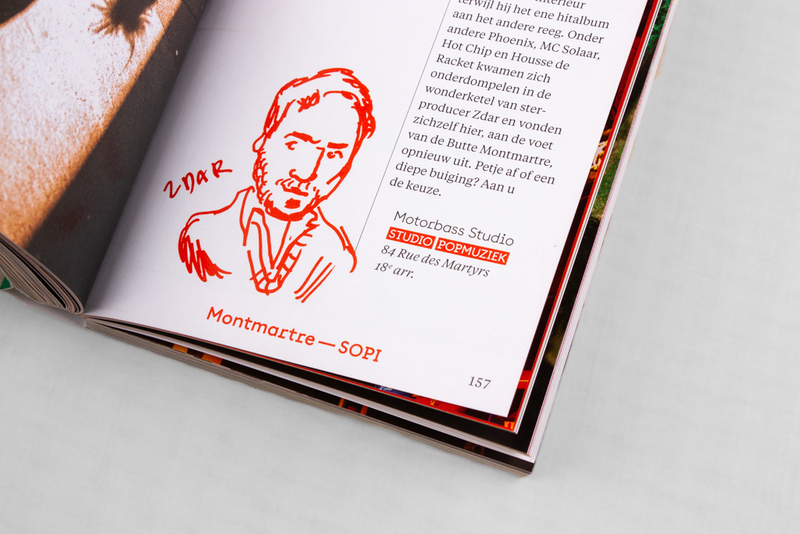 terwijl hij het ene hitalbum
aan het andere reeg. Onder
andere Phoenix, MC Solaar,
Hot Chip en Housse de
Racket kwamen zich
onderdompelen in de
wonderketel van ster-
producer Zdar en vonden
zichzelf hier, aan de voet
van de Butte Montmartre,
opnieuw uit. Petje af of een
diepe buiging? Aan u
de keuze.
ZDAR
Motorbass Studio
STUDIO POPMUZIEK
84 Rue des Martyrs
18e arr.
Montmartre — SOPI
157